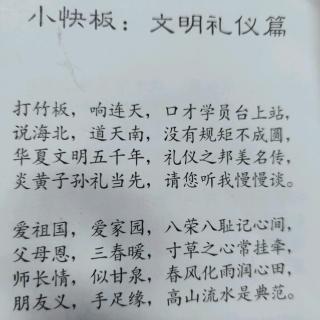 小快板：文明礼仪篇
打竹板，响连天，口才学员台上站，
说海北，道天南，没有规矩不成圆，
华夏文明五千年，礼仪之邦美名传，
炎黄子孙礼当先，请您听我慢慢谈。
爱祖国，爱家园，八荣八耻记心间，
父母恩，三春暖，寸草之心常挂牵，
师长情，似甘泉，春风化雨润心田，
朋友义，手足缘，高山流水是典范。